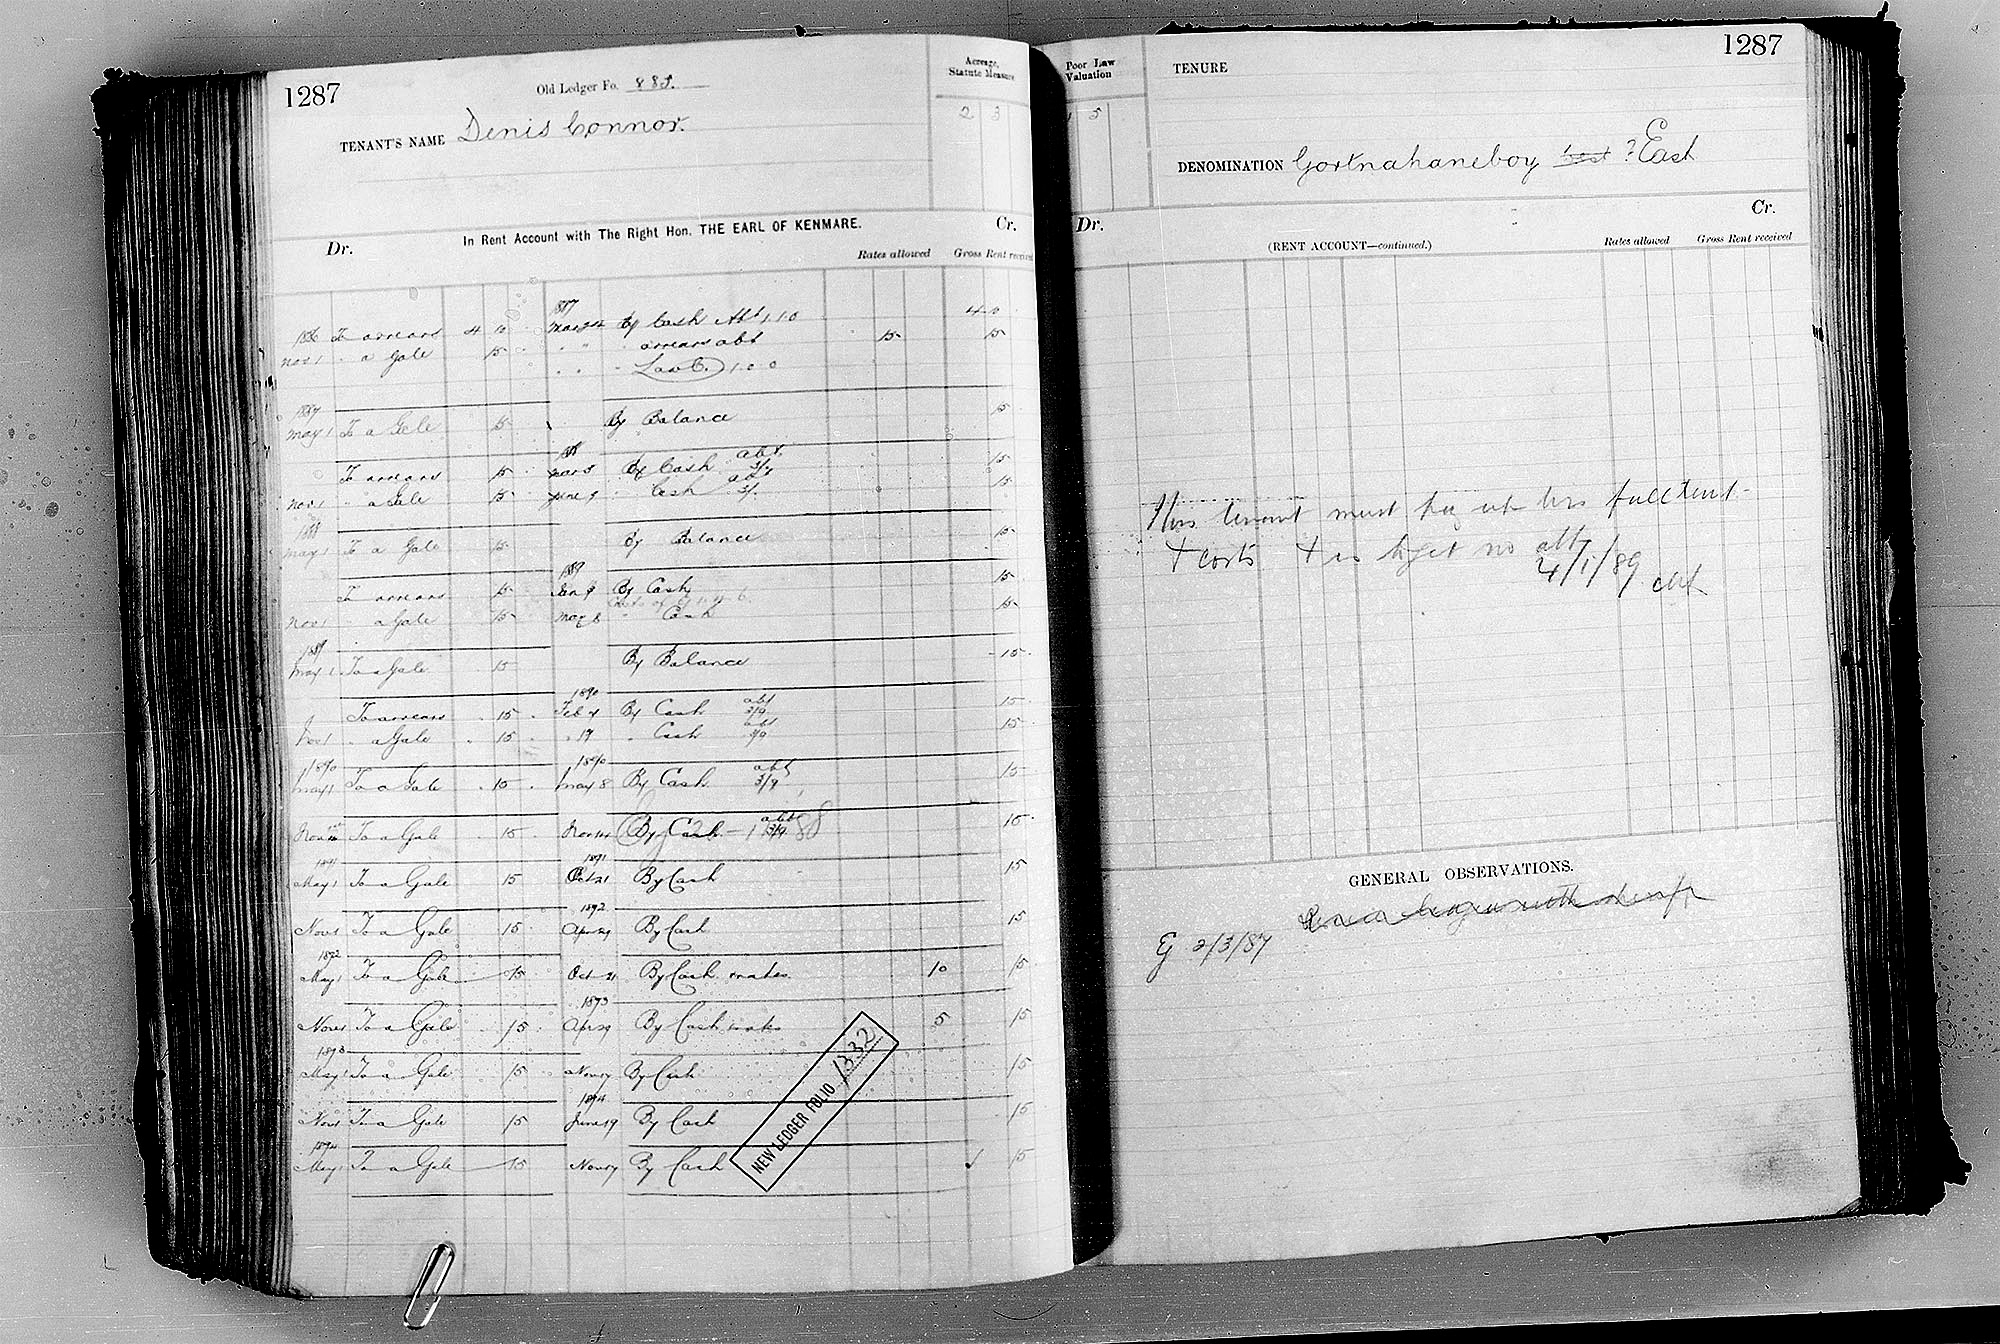 1287
Old Ledger Fo. 885.
Acreage, Statute Measure
2 3
TENANT'S NAME Denis Connor.
In Rent Account with The Right Hon. THE EARL OF KENMARE.
Dr. Cr.
Rates allowed Gross Rent received
1887
1886 To arrears 4 10 Mar 24 By Cash Abt 1.1.0 4 0
Nov 1 " a Gale 15 " " " arrears abt 15 15
" " " Law C. 1 0 0
1887
May 1 To a Gale 15 By Balance 15
1888
To arrears 15 Mar By Cash abt 15
Nov 1 " a Gale 15 June 9 " Cash 15
1888
May 1 To a Gale 15 By Balance 15
1889
To arrears 15 Jan 9 By Cash 15
Nov 1 " a Gale 15 May 8 " Cash 15
1889
May 1 To a Gale 15 By Balance 15
1890
To arrears 15 Feb By Cash abt 3/9 15
Nov 1 " a Gale 15 " 17 " Cash abt 15
1890 1890
May 1 To a Gale 15 May 8 By Cash abt 3/9 15
Nov To a Gale 15 Nov 14 By Cash abt 3/9 15
1891 1891
May 1 To a Gale 15 Oct 21 By Cash 15
1892
Nov 1 To a Gale 15 Apr 29 By Cash 15
1892
May 1 To a Gale 15 Oct 21 By Cash rates 10 15
1893
Nov 1 To a Gale 15 Apr 29 By Cash rates 5 15
1893
May 1 To a Gale 15 Nov 17 By Cash 15
1894
Nov 1 To a Gale 15 June 19 By Cash 15
1894
May 1 To a Gale 15 Nov 17 By Cash 15
NEW LEDGER FOLIO 1332
1287
Poor Law Valuation
1 5
TENURE
DENOMINATION Gortnahaneboy West ? East
Dr. Cr.
(RENT ACCOUNT—continued.)
Rates allowed Gross Rent received
This tenant must pay up his full rent
& costs & is to get no abt
4/1/89
GENERAL OBSERVATIONS.
2/3/87